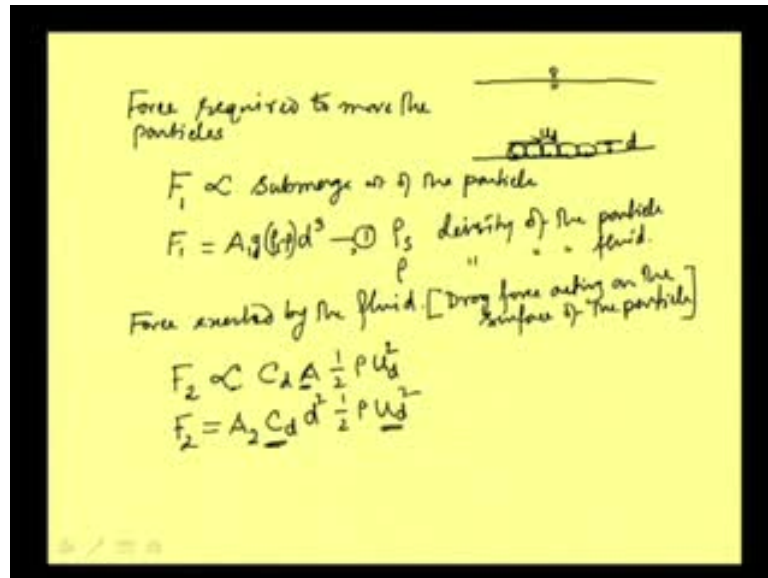 Force required to move the
particles
d
F₁ ∝ Submerge wt of the particle
F₁ = A₁g(ρs-ρ)d³ —① ρs density of the particle
ρ " " " fluid.
Force exerted by the fluid. [Drag force acting on the
surface of the particle]
F₂ ∝ Cd A ½ ρ Ud²
F₂ = A₂ Cd d² ½ ρ Ud²